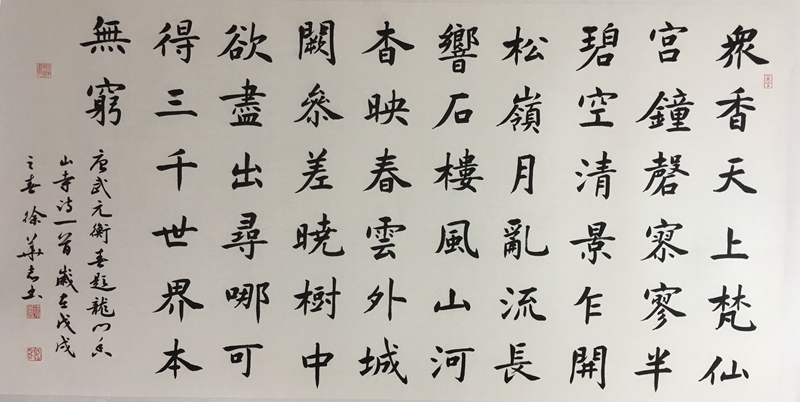 衆香天上梵仙
宮鐘磬寮寥半
碧空清景乍開
松嶺月亂流長
響石樓風山河
杳映春雲外城
闕參差曉樹中
欲盡出尋哪可
得三千世界本
無窮
唐武元衡春題龍門香
山寺詩一首歲在戊戌
之春徐華書